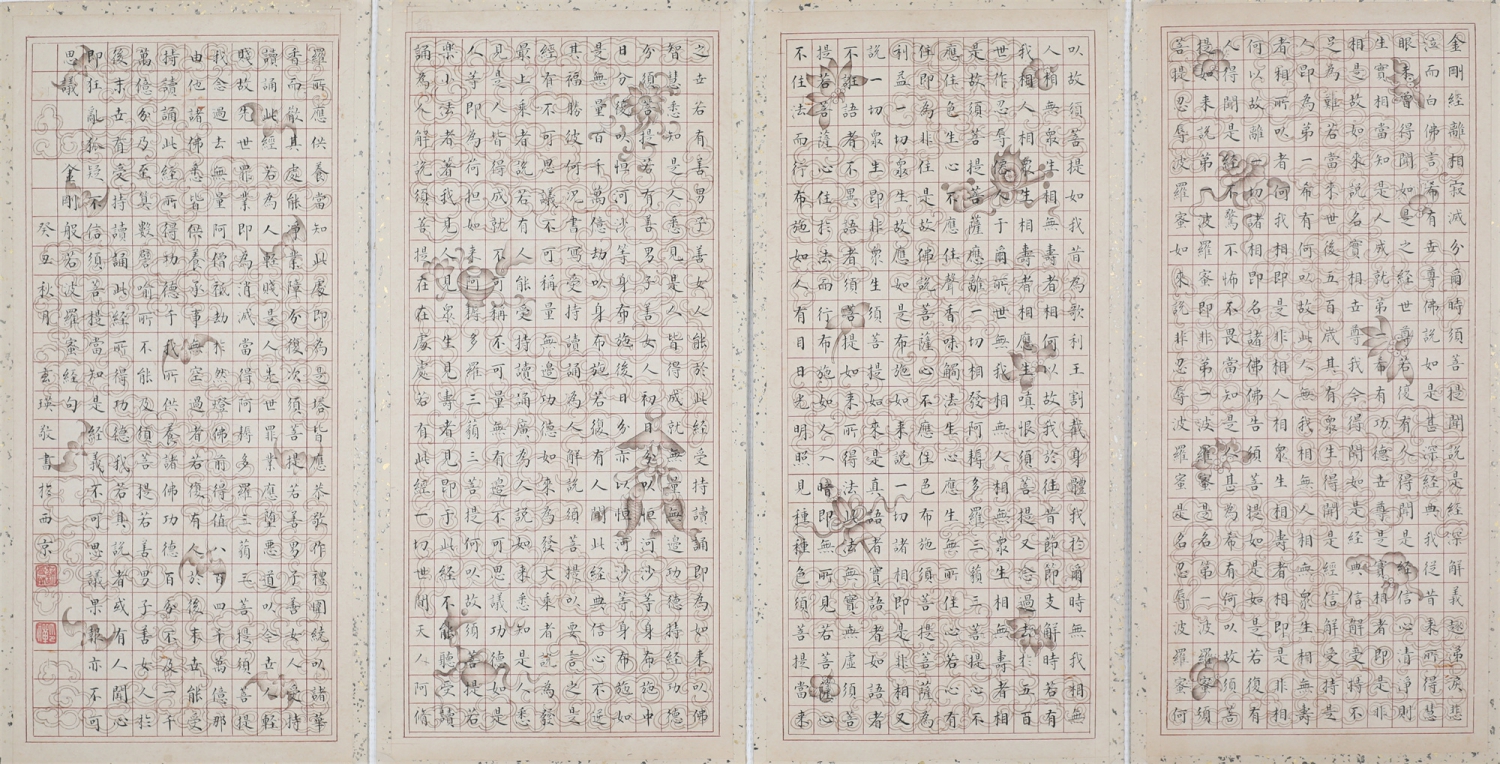 金剛經離相寂滅分爾時須菩提聞說是經深解義趣涕淚悲
泣而白佛言希有世尊佛說如是甚深經典我從昔来所得慧
眼未曾得聞如是之経世尊若復有人得聞是經信心清淨則
生實相當知是人成就第一希有功德世尊是實相者即是非
相是故如来說名實相世尊我今得聞如是經典信解受持不
足為難若當来世後五百歲其有眾生得聞是經信解受持是
人即為第一希有何以故此人無我相無人相無眾生相無壽
者相所以者何我相即是非相人相眾生相壽者相即是非相
何以故離一切諸相即名諸佛佛告須菩提如是如是若復有
人得聞是經不驚不怖不畏當知是人甚為希有何以故須菩
提如来說第一波羅蜜即非第一波羅蜜是名第一波羅蜜須
菩提忍辱波羅蜜如來說非忍辱波羅蜜是名忍辱波羅蜜何
以故須菩提如我昔為歌利王割截身體我於爾時無我相無
人相無眾生相無壽者相何以故我於往昔節節支解時若有
我相人相眾生相壽者相應生嗔恨須菩提又念過去於五百
世作忍辱仙人于爾所世無我相無人相無眾生相無壽者相
是故須菩提菩薩應離一切相發阿耨多羅三藐三菩提心不
應住色生心不應住聲香味觸法生心應生無所住心若心有
住即為非住是故佛說菩薩心不應住色布施須菩提菩薩為
利益一切眾生故應如是布施如来說一切諸相即是非相又
說一切眾生即非眾生須菩提如來是真語者實語者如語者
不誑語者不異語者須菩提如来所得法此法無實無虛須菩
提若菩薩心住於法而行布施如人入暗即無所見若菩薩心
不住法而行布施如人有目日光明照見種種色須菩提當来
之世若有善男子善女人能於此經受持讀誦即為如来以佛
智慧悉知是人悉見是人皆得成就無量無邊功德持經功德
分須菩提若有善男子善女人初日分以恒河沙等身布施中
日分復以恒河沙等身布施後日分亦以恒河沙等身布施如
是無量百千萬億劫以身布施若復有人聞此經典信心不逆
其福勝彼何况書寫受持讀誦為人解說須菩提以要言之是
經有不可思議不可稱量無邊功德如来為發大乘者說為發
最上乘者說若有人能受持讀誦廣為人說如来悉知是人悉
見是人皆得成就不可稱不可量無有邊不可思議功德如是
人等即為荷担如来阿耨多羅三藐三菩提何以故須菩提若
樂小法者著我見人見眾生見壽者見即于此経不能聽受讀
誦為人解說須菩提在在處處若有此經一切世間天人阿修
羅所應供養當知此處即為是塔皆應恭敬作禮圍繞以諸華
香而散其處能淨業障分復次須菩提若善男子善女人受持
讀誦此經若為人輕賤是人先世罪業應墮惡道以今世人輕
賤故先世罪業即為消滅當得阿耨多羅三藐三菩提須菩提
我念過去無量阿僧祇劫於然燈佛前得值八百四千萬億那
由他諸佛悉皆供養承事無空過者若復有人於後末世能受
持讀誦此經所得功德于我所供養諸佛功德百分不及一千
萬億分乃至算數譬喻所不能及須菩提若善男子善女人於
後末世有受持讀誦此經所得功德我若具說者或有人聞心
即狂亂狐疑不信須菩提當知是經義不可思議果報亦不可
思議 金剛般若波羅蜜經句
癸丑秋月玄瑛敬書於西京